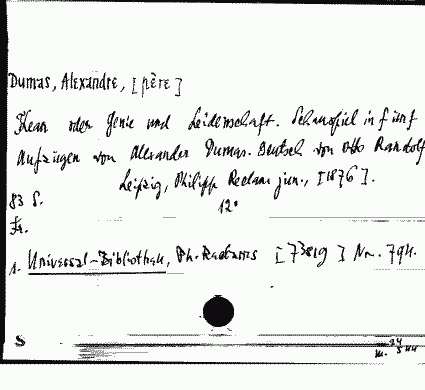 Dumas, Alexandre, [père]
Kean oder Genie und Leidenschaft. Schauspiel in fünf
Aufzügen von Alexander Dumas. Deutsch von Otto Randolf
Leipzig, Philipp Reclam jun., [1876].
83 S. 12°
Fr.
1. Universal-Bibliothek, Ph. Reclams [73819] Nr. 794.
S